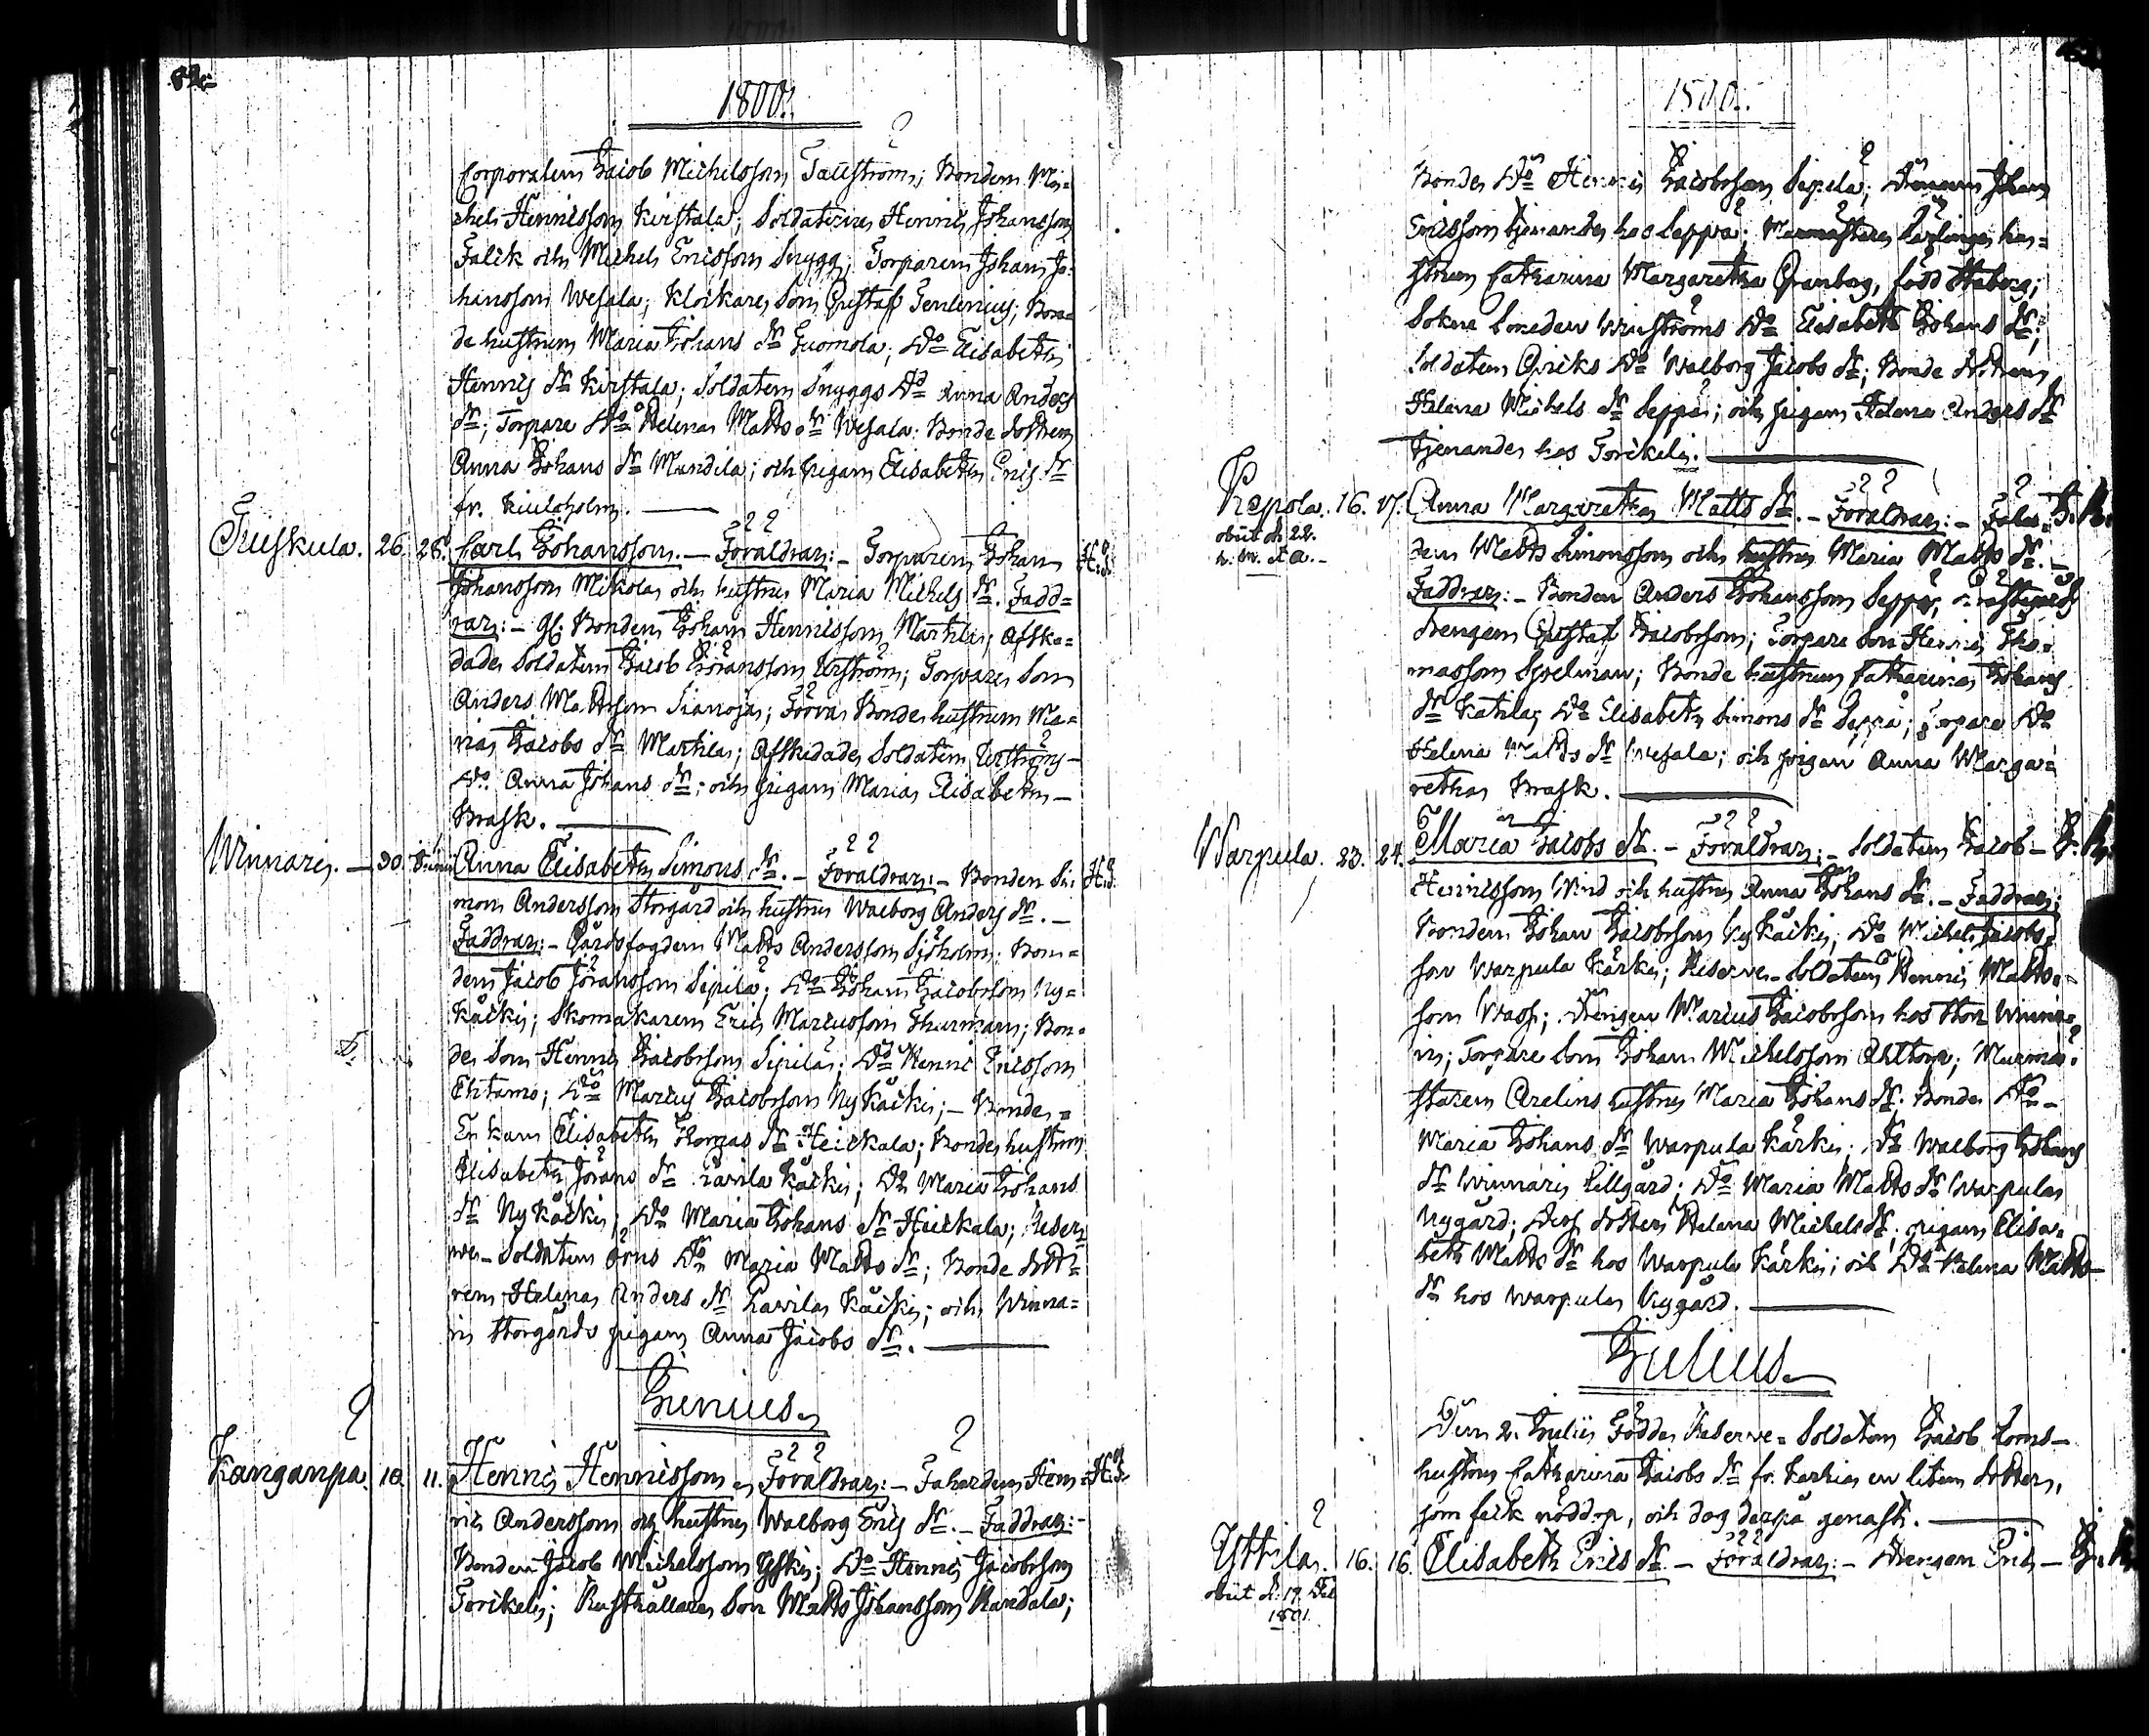 1800.
Corporalen Jacob Michelsson Tallström; Bonden Mi=
chel Henricsson Kirstala; Soldaterne Henric Johansson
Falck och Michel Ericsson Snygg; Torparen Johan Jo=
hansson Wesala; Klockare Son Gustaf Tenlenius; Bon=
de hustrun Maria Johans dr Juomola; Do Elisabeth
Henrics dr Kirstala; Soldaten Snyggs Do Anna Anders
dr; Torpare Do Helena Matts dr Wesala; Bonde dottren
Anna Johans dr Mundila; och pigan Elisabeth Erics dr
fr. Kiuloholm.
Tuiskula. 26. 28. Carl Johansson. – Föräldrar: – Torparen Johan H:d.
Johansson Mikola och hustru Maria Michels dr. Fadd=
rar: – gl. Bonden Johan Henricsson Marttila; Afske=
dade Soldaten Jacob Göransson Urström; Torpare Son
Anders Mattsson Sianoja; Förra Bonde hustrun Ma=
ria Jacobs dr Marttila; Afskedade Soldaten Urströms
Do Anna Johans dr; och pigan Maria Elisabeth
Brask.
Winnaris. – 30. Junii Anna Elisabeth Simons dr. – Föräldrar: – Bonden Si= H:d.
mon Andersson Storgård och hustru Walborg Anders dr. –
Faddrar: – Gårdsfogden Matts Andersson Sjöholm; Bon=
den Jacob Jöransson Sipilä; Do Johan Jacobsson Ny=
Käcki; Skomakaren Eric Mariusson Thurman; Bon=
de Son Henric Jacobsson Sipilä; Do Henric Ericsson
Ehtamo; Do Marius Jacobsson Ny Käcki; – Bonde=
Enkan Elisabeth Thomas dr Heickala; Bonde hustrun
Elisabeth Jörans dr Lavila Käcki; Do Maria Johans
dr Ny Käcki; Do Maria Johans dr Heickala; Reser=
ve-Soldaten Örns Do Maria Matts dr; Bonde dott=
ren Helena Anders dr Lavila Käcki; och Winna=
ris Storgårds pigan Anna Jacobs dr.
Junius.
Kanganpä. 10. 11. Henric Henricsson. Föräldrar: – Inhysdn Hen= H:d.
ric Andersson och hustru Walborg Erics dr. – Faddrar: –
Bonden Jacob Michelsson Yski; Do Henric Jacobsson
Torikeli; Rusthållare Son Matts Johansson Randala;
1800.
Bonde Do Henric Jacobsson Sipilä; Drengen Johan
Ericsson tjenandes hos Seppä; Murmästare hu=
strun Catharina Margaretha Granberg, född Staberg;
Sokne Smeden Winströms Do Elisabeth Johans dr;
Soldaten Qviks Do Walborg Jacobs dr; Bonde dottren
Helena Michels dr Seppä; och pigan Helena Anders dr
tjenandes hos Torikeli.
Repola. 16. 17. Anna Margaretha Matts dr. – Föräldrar: –
obiit d. 22.
den Matts Simonsson och hustru Maria Matts dr. –
Faddrar: – Bonden Anders Johansson Seppä;
drengen Gustaf Jacobsson; Torpare Son Henric Tho=
masson Spelman; Bonde hustrun Catharina Johans
dr Kattila; Do Elisabeth Simons dr Seppä; Torpare Do
Helena Matts dr Wesala; och pigan Anna Marga=
retha Brask.
Warpula. 23. 24. Maria Jacobs dr. – Föräldrar: – Soldaten Jacob
Henricsson Wind och hustru Anna Johans dr. – Faddrar:
Bonden Johan Jacobsson Ny Käcki; Do Michel Jacobs=
son Warpula Kärki; Reserve-Soldaten Henric Matts=
son Wass; Drengen Marius Jacobsson hos Stor Winna=
ris; Torpare Son Johan Michelsson Ahltora; Murmä=
staren Arelins hustru Maria Johans dr; Bonde Do
Maria Johans dr Warpula Kärki; Do Walborg Johans
dr Winnaris Lillgård; Do Maria Matts dr Warpula
Nygård; Dess dotter Helena Michels dr; pigan Elisa=
beth Matts dr hos Warpula Kärki; och Do Helena Matts
dr hos Warpula Nygård.
Julius.
Den 2. Julii födde Reserve-Soldaten Jacob Loms
hustru Catharina Jacobs dr fr. Karhia en liten dotter,
som feck nöddop, och dog derpå genast.
Yttilä. 16. 16. Elisabeth Erics dr – Föräldrar: – Drengen Eric
obiit d. 17.
1801.